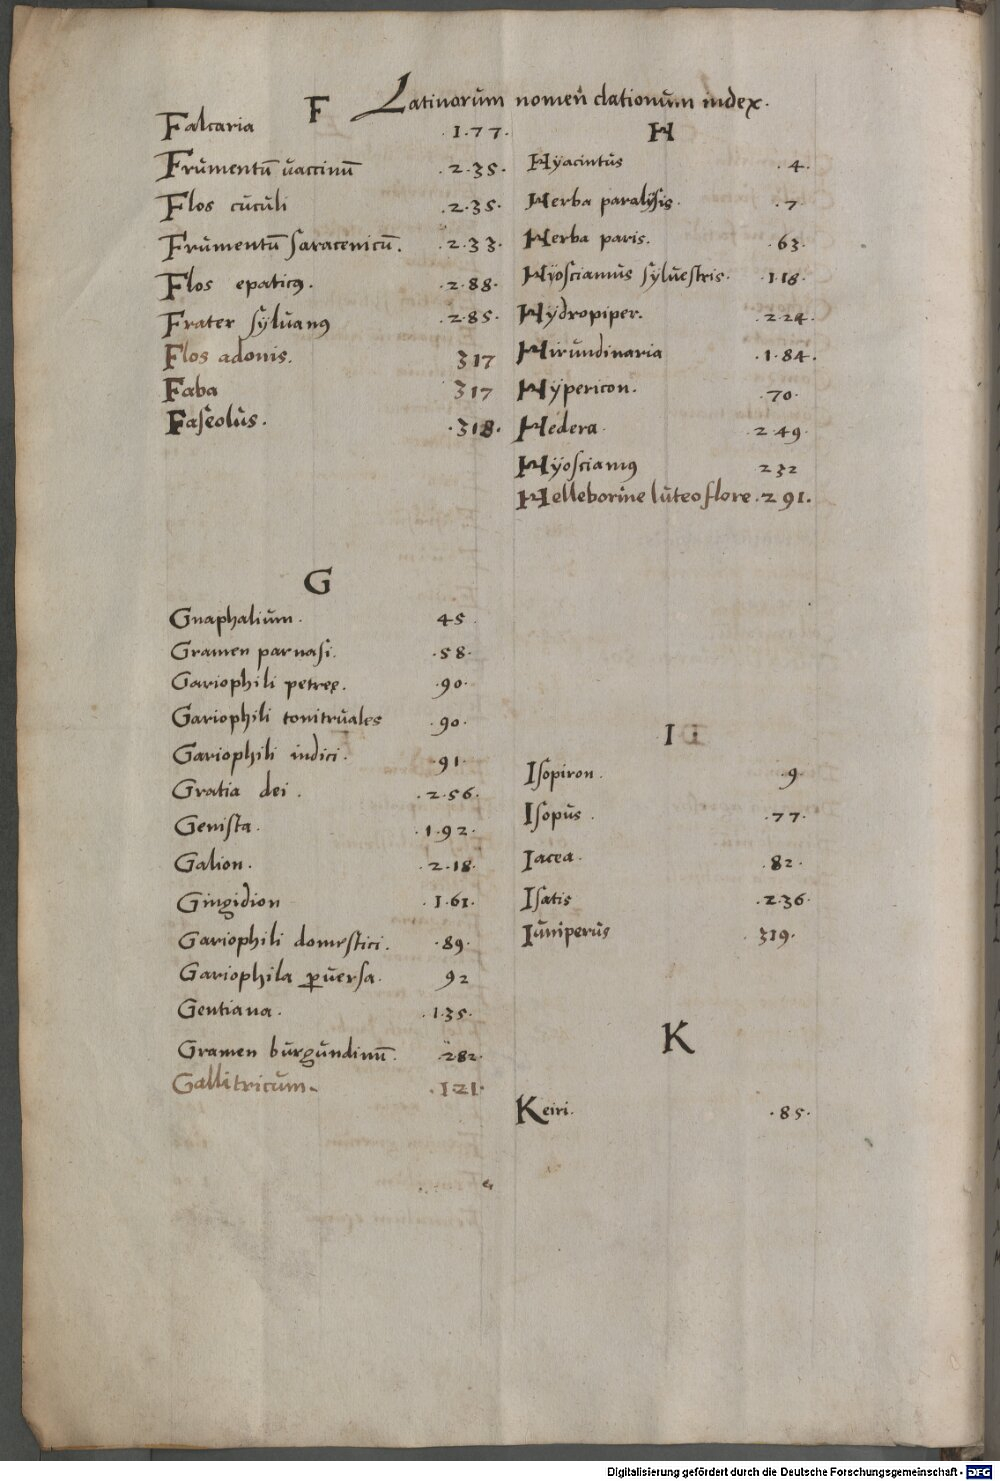 Latinarum nomen̄clationum index.
F
Falcaria .1.77.
Frumentū vaccinū .2.35.
Flos cuculi .2.35.
Frumentū saracenicū. .2.33.
Flos epaticꝯ. .2.88.
Frater sylvanꝯ .285.
Flos adonis. 317
Faba 317
Faseolus. .318.
G
Gnaphalium. 45.
Gramen parnasi. .58.
Gariophili petreę. .90.
Gariophili tonitruales .90.
Gariophili indici. .91.
Gratia dei. .2.56.
Genista. .1.92.
Galion. .2.18.
Gingidion .1.61.
Gariophili domestici. .89.
Gariophila ꝑversa. 92
Gentiana. .1.35.
Gramen burgundinū. .282.
Gallitricum. .121.
H
Hyacintus .4.
Herba paralysis. .7
Herba paris. .63.
Hÿosciamus sylvestris. .1.18.
Hÿdropiper. .2.24.
Hirundinaria .1.84.
Hÿpericon. .70.
Hedera. .2.49.
Hÿosciamꝯ 232
Helleborine luteo flore .291.
I
Isopiron. .9.
Isopus. .77.
Iacea. .82.
Isatis .2.36.
Iuniperus 319.
K
Keiri. .85.
Digitalisierung gefördert durch die Deutsche Forschungsgemeinschaft - DFG